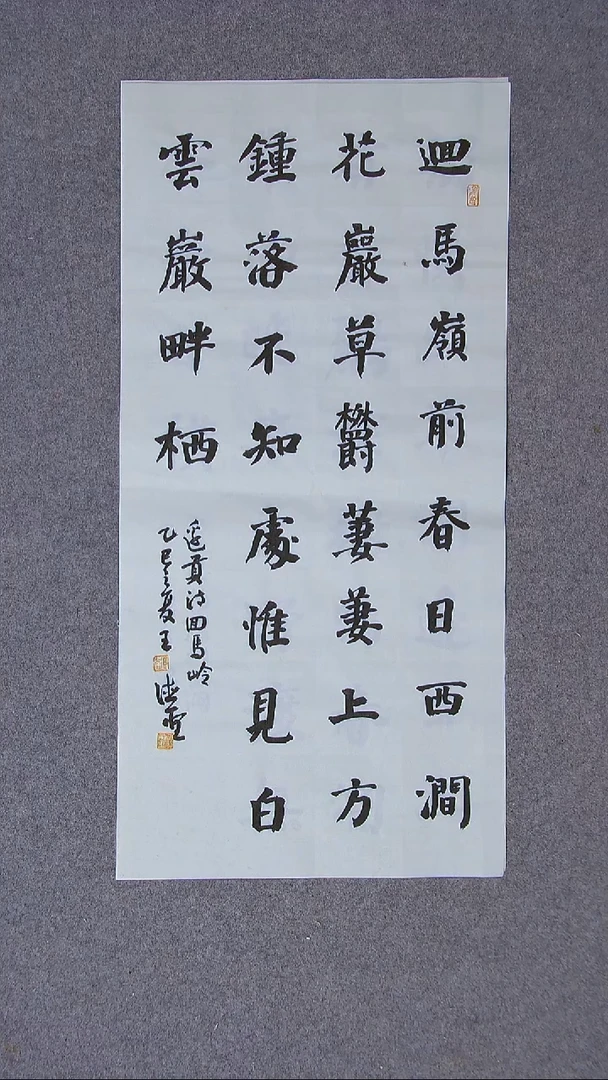 迴馬嶺前春日西澗
花巖草鬱萋萋上方
鍾落不知處惟見白
雲巖畔栖
邊貢詩回馬岭
乙巳之夏王